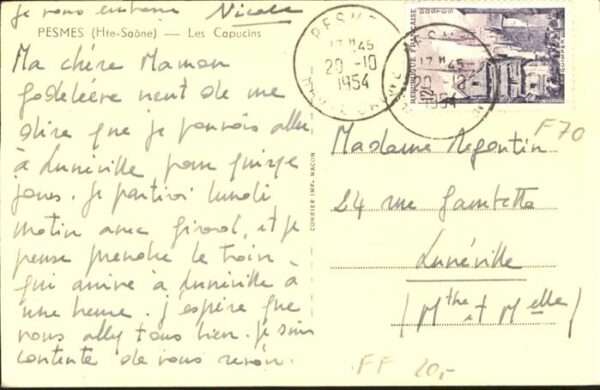 je vous embrasse Nicole
PESMES (Hte-Saône) — Les Capucins
Ma chère Maman
vient de me
dire que je pouvais aller
à Lunéville pour quinze
jours. je partirai lundi
matin avec Girard, et je
pense prendre le train
qui arrive à Lunéville à
une heure. j'espère que
vous allez tous bien. je suis
contente de vous revoir.
COMBIER IMP. MACON
PESMES
17 H 45
20-10
1954
HAUTE-SAONE
PESMES
17 H 45
20-10
1954
REPUBLIQUE FRANÇAISE
12F
F70
Madame Regentin
24 rue Gambetta
Lunéville
(Mthe et Mselle)
FF 20,-